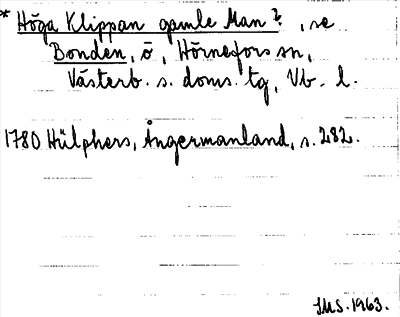 * Höga Klippan gamle Man ?, se
Bonden, ö, Hörnefors sn,
Västerb. s. doms. tg, Vb. l.
1780 Hülphers, Ångermanland, s. 282.
JMS. 1963.